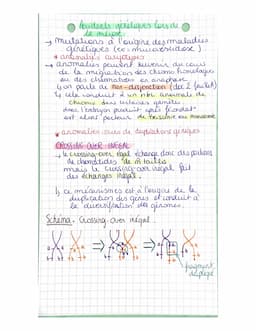 Accidents génétiques lors de
la méiose.
→ mutations à l'origine des maladies
génétiques (ex: mucoviscidose)
* anomalies caryotypes
→ anomalies peuvent survenir au cours
de la migration des chromo homologues
ou des chromatides en anaphase
↳ on parle de non-disjonction
↳ cela conduit à un nbre anormale de
chromo dans certaines gamètes
donc l'embryon produit après fécondat°
est alors porteur de trisomie ou monosomie
* anomalies suivi de duplications géniques
CROSSING OVER INÉGAL
. le crossing-over égal échange donc des portions
de chromatides de m̂ tailles
mais le crossing-over inégal fait
des échanges inégal.
↳ ce mécanismes est à l'origine de la
duplication des gènes et conduit à
la diversification des génomes.
Schéma. Crossing-over inégal.
fragment
dupliqué